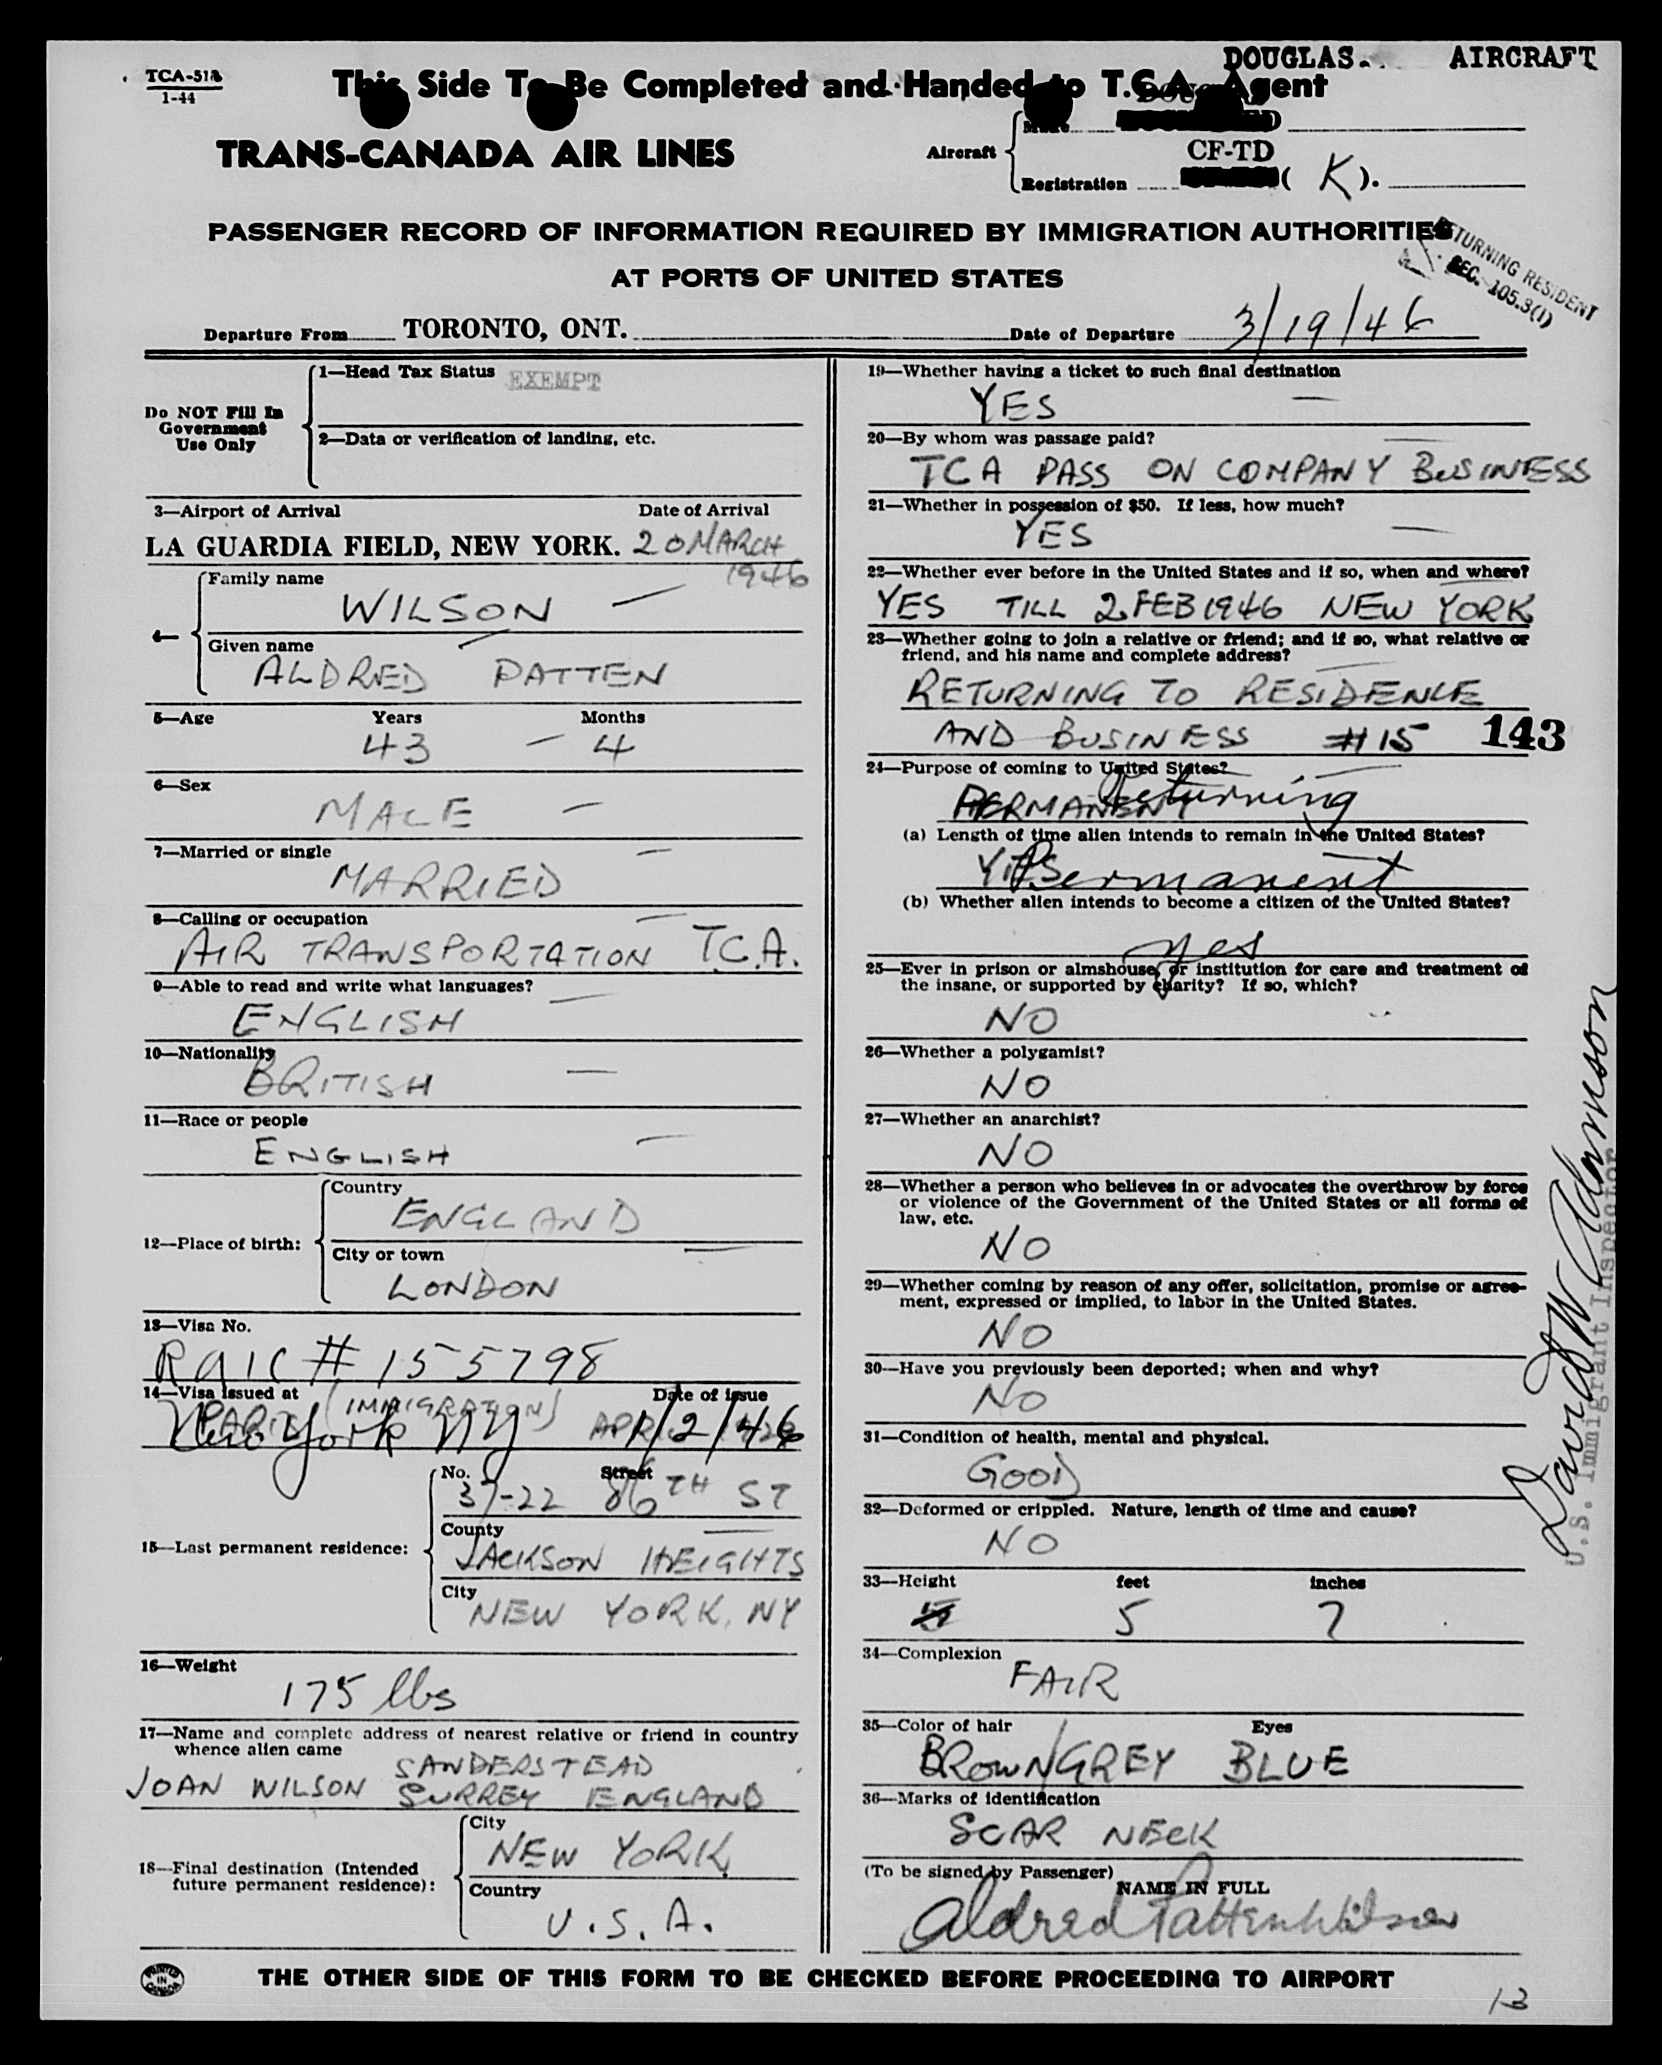 DOUGLAS. AIRCRAFT
TCA-518
1-44
This Side To Be Completed and Handed to T.C.A. Agent
TRANS-CANADA AIR LINES
Aircraft
Make
CF-TD
Registration ( K ).
PASSENGER RECORD OF INFORMATION REQUIRED BY IMMIGRATION AUTHORITIES
AT PORTS OF UNITED STATES
RETURNING RESIDENT
SEC. 105.3(1)
Departure From TORONTO, ONT. Date of Departure 3/19/46
Do NOT Fill In
Government
Use Only
1—Head Tax Status EXEMPT
2—Data or verification of landing, etc.
3—Airport of Arrival Date of Arrival
LA GUARDIA FIELD, NEW YORK. 20 MARCH
1946
4—
Family name
WILSON
Given name
ALDRED PATTEN
5—Age Years Months
43 - 4
6—Sex
MALE
7—Married or single
MARRIED
8—Calling or occupation
AIR TRANSPORTATION T.C.A.
9—Able to read and write what languages?
ENGLISH
10—Nationality
BRITISH
11—Race or people
ENGLISH
12—Place of birth:
Country
ENGLAND
City or town
LONDON
13—Visa No.
RAIC # 155798
14—Visa issued at Date of issue
(IMMIGRATION)
New York NY 1/2/46
15—Last permanent residence:
No. Street
37-22 86TH ST
County
JACKSON HEIGHTS
City
NEW YORK, NY
16—Weight
175 lbs
17—Name and complete address of nearest relative or friend in country
whence alien came
SANDERSTEAD
JOAN WILSON SURREY ENGLAND
18—Final destination (Intended
future permanent residence):
City
NEW YORK
Country
U.S.A.
19—Whether having a ticket to such final destination
YES
20—By whom was passage paid?
TCA PASS ON COMPANY BUSINESS
21—Whether in possession of $50. If less, how much?
YES
22—Whether ever before in the United States and if so, when and where?
YES TILL 2 FEB 1946 NEW YORK
23—Whether going to join a relative or friend; and if so, what relative or
friend, and his name and complete address?
RETURNING TO RESIDENCE
AND BUSINESS #15 143
24—Purpose of coming to United States?
PERMANENT Returning
(a) Length of time alien intends to remain in the United States?
YES Permanent
(b) Whether alien intends to become a citizen of the United States?
yes
25—Ever in prison or almshouse, or institution for care and treatment of
the insane, or supported by charity? If so, which?
NO
26—Whether a polygamist?
NO
27—Whether an anarchist?
NO
28—Whether a person who believes in or advocates the overthrow by force
or violence of the Government of the United States or all forms of
law, etc.
NO
29—Whether coming by reason of any offer, solicitation, promise or agree-
ment, expressed or implied, to labor in the United States.
NO
30—Have you previously been deported; when and why?
NO
31—Condition of health, mental and physical.
GOOD
32—Deformed or crippled. Nature, length of time and cause?
NO
33—Height feet inches
5 7
34—Complexion
FAIR
35—Color of hair Eyes
BROWN/GREY BLUE
36—Marks of identification
SCAR NECK
(To be signed by Passenger)
NAME IN FULL
Aldred Patten Wilson
David W Adamson
U.S. Immigrant Inspector
PRINTED IN CANADA
THE OTHER SIDE OF THIS FORM TO BE CHECKED BEFORE PROCEEDING TO AIRPORT
13